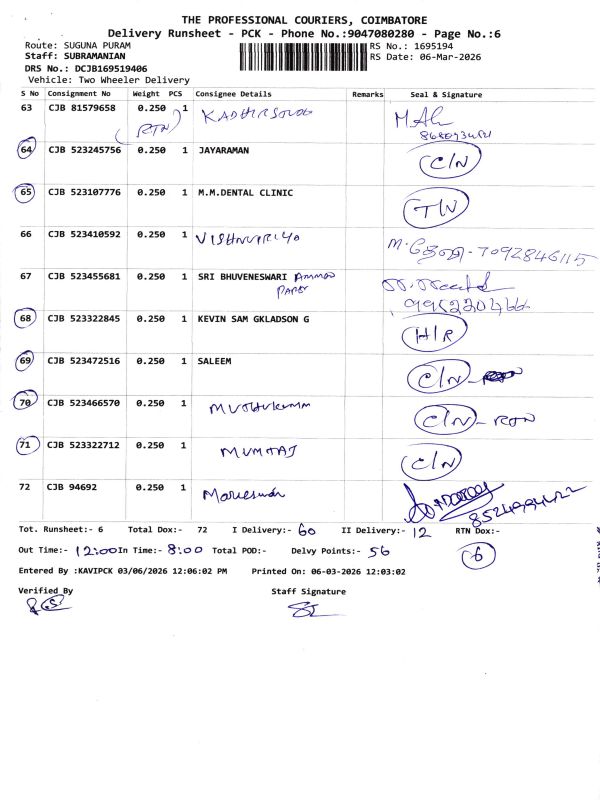 THE PROFESSIONAL COURIERS, COIMBATORE
Delivery Runsheet - PCK - Phone No.:9047080280 - Page No.:6
Route: SUGUNA PURAM RS No.: 1695194
Staff: SUBRAMANIAN RS Date: 06-Mar-2026
DRS No.: DCJB169519406
Vehicle: Two Wheeler Delivery
S No Consignment No Weight PCS Consignee Details Remarks Seal & Signature
63 CJB 81579658 0.250 1
(RTN)
64 CJB 523245756 0.250 1 JAYARAMAN C/N
65 CJB 523107776 0.250 1 M.M.DENTAL CLINIC
66 CJB 523410592 0.250 1 VISHNUPRIYA 7092846115
67 CJB 523455681 0.250 1 SRI BHUVENESWARI AMMAN
PAPER 9952220466
68 CJB 523322845 0.250 1 KEVIN SAM GKLADSON G H/R
69 CJB 523472516 0.250 1 SALEEM C/N
70 CJB 523466570 0.250 1 C/N - RTN
71 CJB 523322712 0.250 1 MUMTAJ C/N
72 CJB 94692 0.250 1
Tot. Runsheet:- 6 Total Dox:- 72 I Delivery:- 60 II Delivery:- 12 RTN Dox:- 6
Out Time:- 12:00 In Time:- 8:00 Total POD:- Delvy Points:- 56
Entered By :KAVIPCK 03/06/2026 12:06:02 PM Printed On: 06-03-2026 12:03:02
Verified By Staff Signature